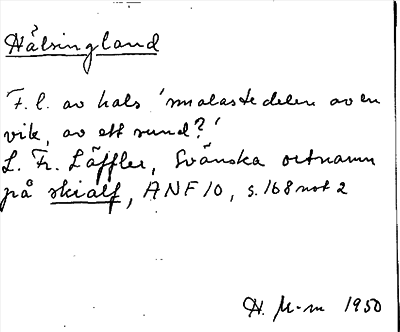 Hälsingland
F.l. av hals 'smalaste delen av en
vik, av ett sund?'
L. Fr. Läffler, Svänska ortnamn
på skialf, ANF 10, s. 168 not 2
H. M-m 1950